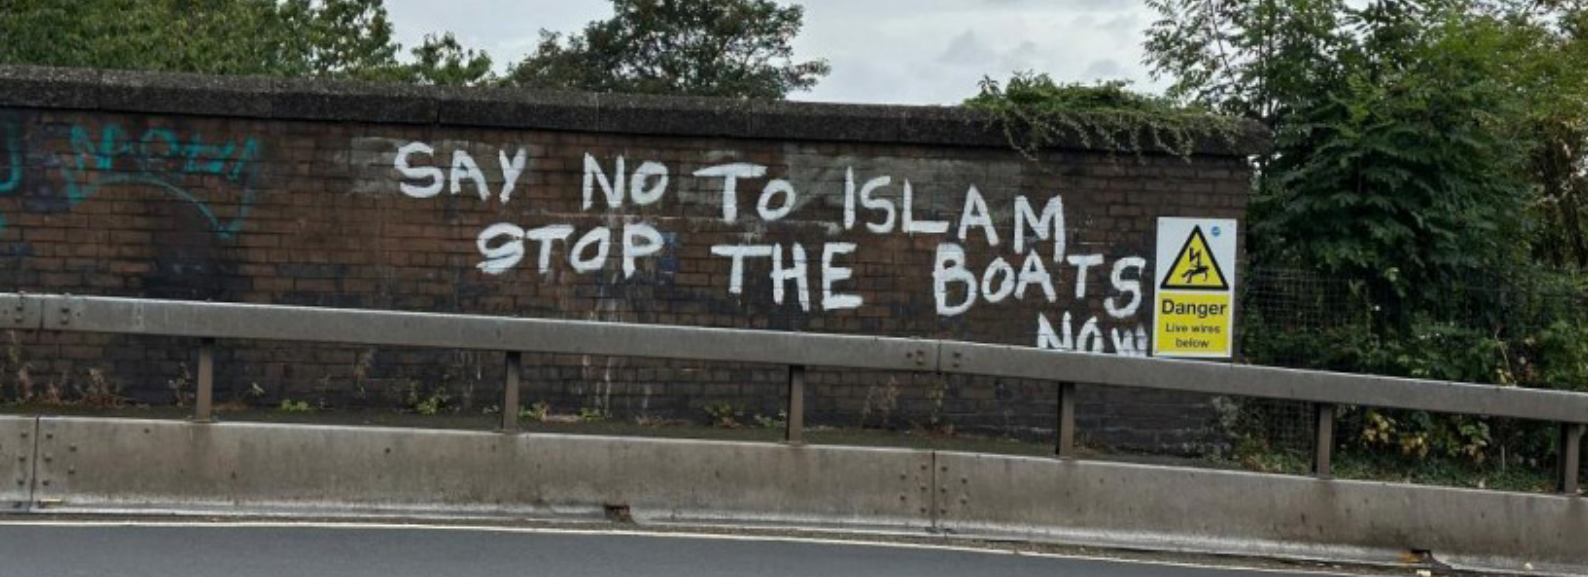 SAY NO TO ISLAM
STOP THE BOATS
NOW
Danger
Live wires
below